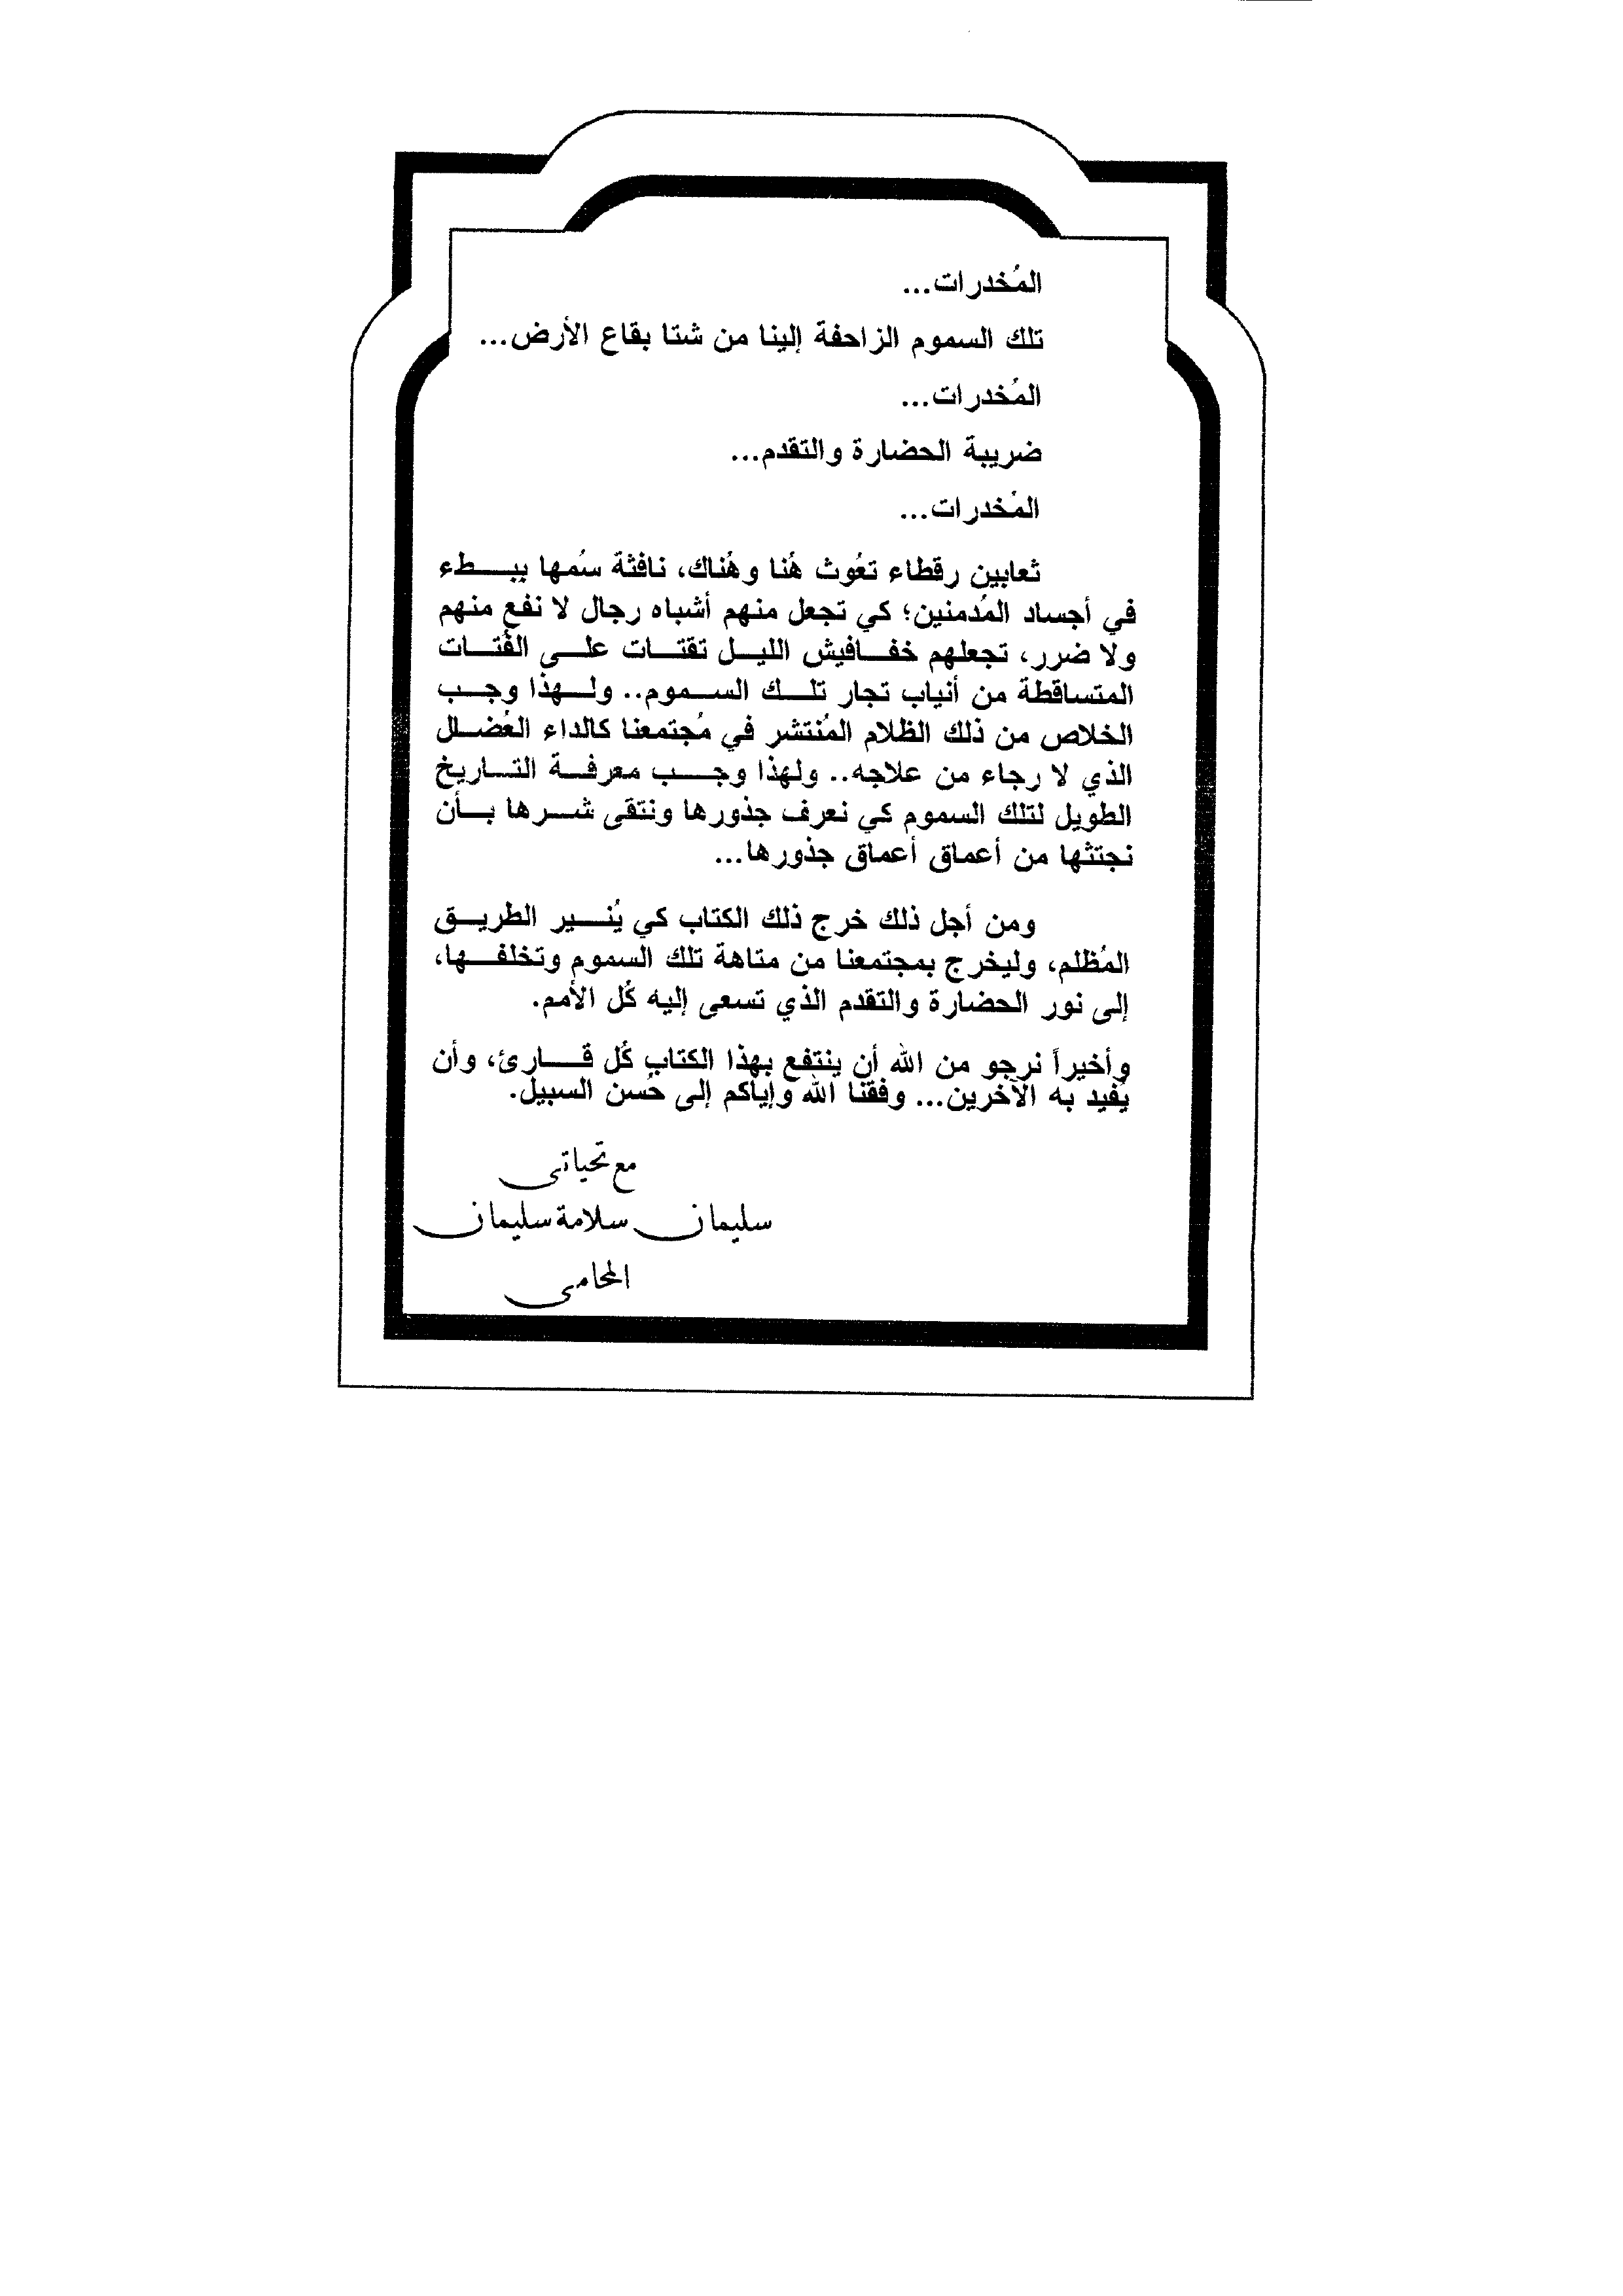 المُخدرات...
تلك السموم الزاحفة إلينا من شتا بقاع الأرض...
المُخدرات...
ضريبة الحضارة والتقدم...
المُخدرات...
ثعابين رقطاء تعُوث هُنا وهُناك، نافثة سُمها ببطء
في أجساد المُدمنين؛ كي تجعل منهم أشباه رجال لا نفع منهم
ولا ضرر، تجعلهم خفافيش الليل تقتات على الفُتات
المتساقطة من أنياب تجار تلك السموم.. ولهذا وجب
الخلاص من ذلك الظلام المُنتشر في مُجتمعنا كالداء العُضلل
الذي لا رجاء من علاجه.. ولهذا وجب معرفة التاريخ
الطويل لتلك السموم كي نعرف جذورها ونتقى شرها بأن
نجتثها من أعماق أعماق جذورها...
ومن أجل ذلك خرج ذلك الكتاب كي يُنير الطريق
المُظلم، وليخرج بمجتمعنا من متاهة تلك السموم وتخلفها،
إلى نور الحضارة والتقدم الذي تسعى إليه كُل الأمم.
وأخيراً نرجو من الله أن ينتفع بهذا الكتاب كُل قارئ، وأن
يُفيد به الآخرين... وفقنا الله وإياكم إلى حُسن السبيل.
مع تحياتى
سليمان سلامة سليمان
المحامى